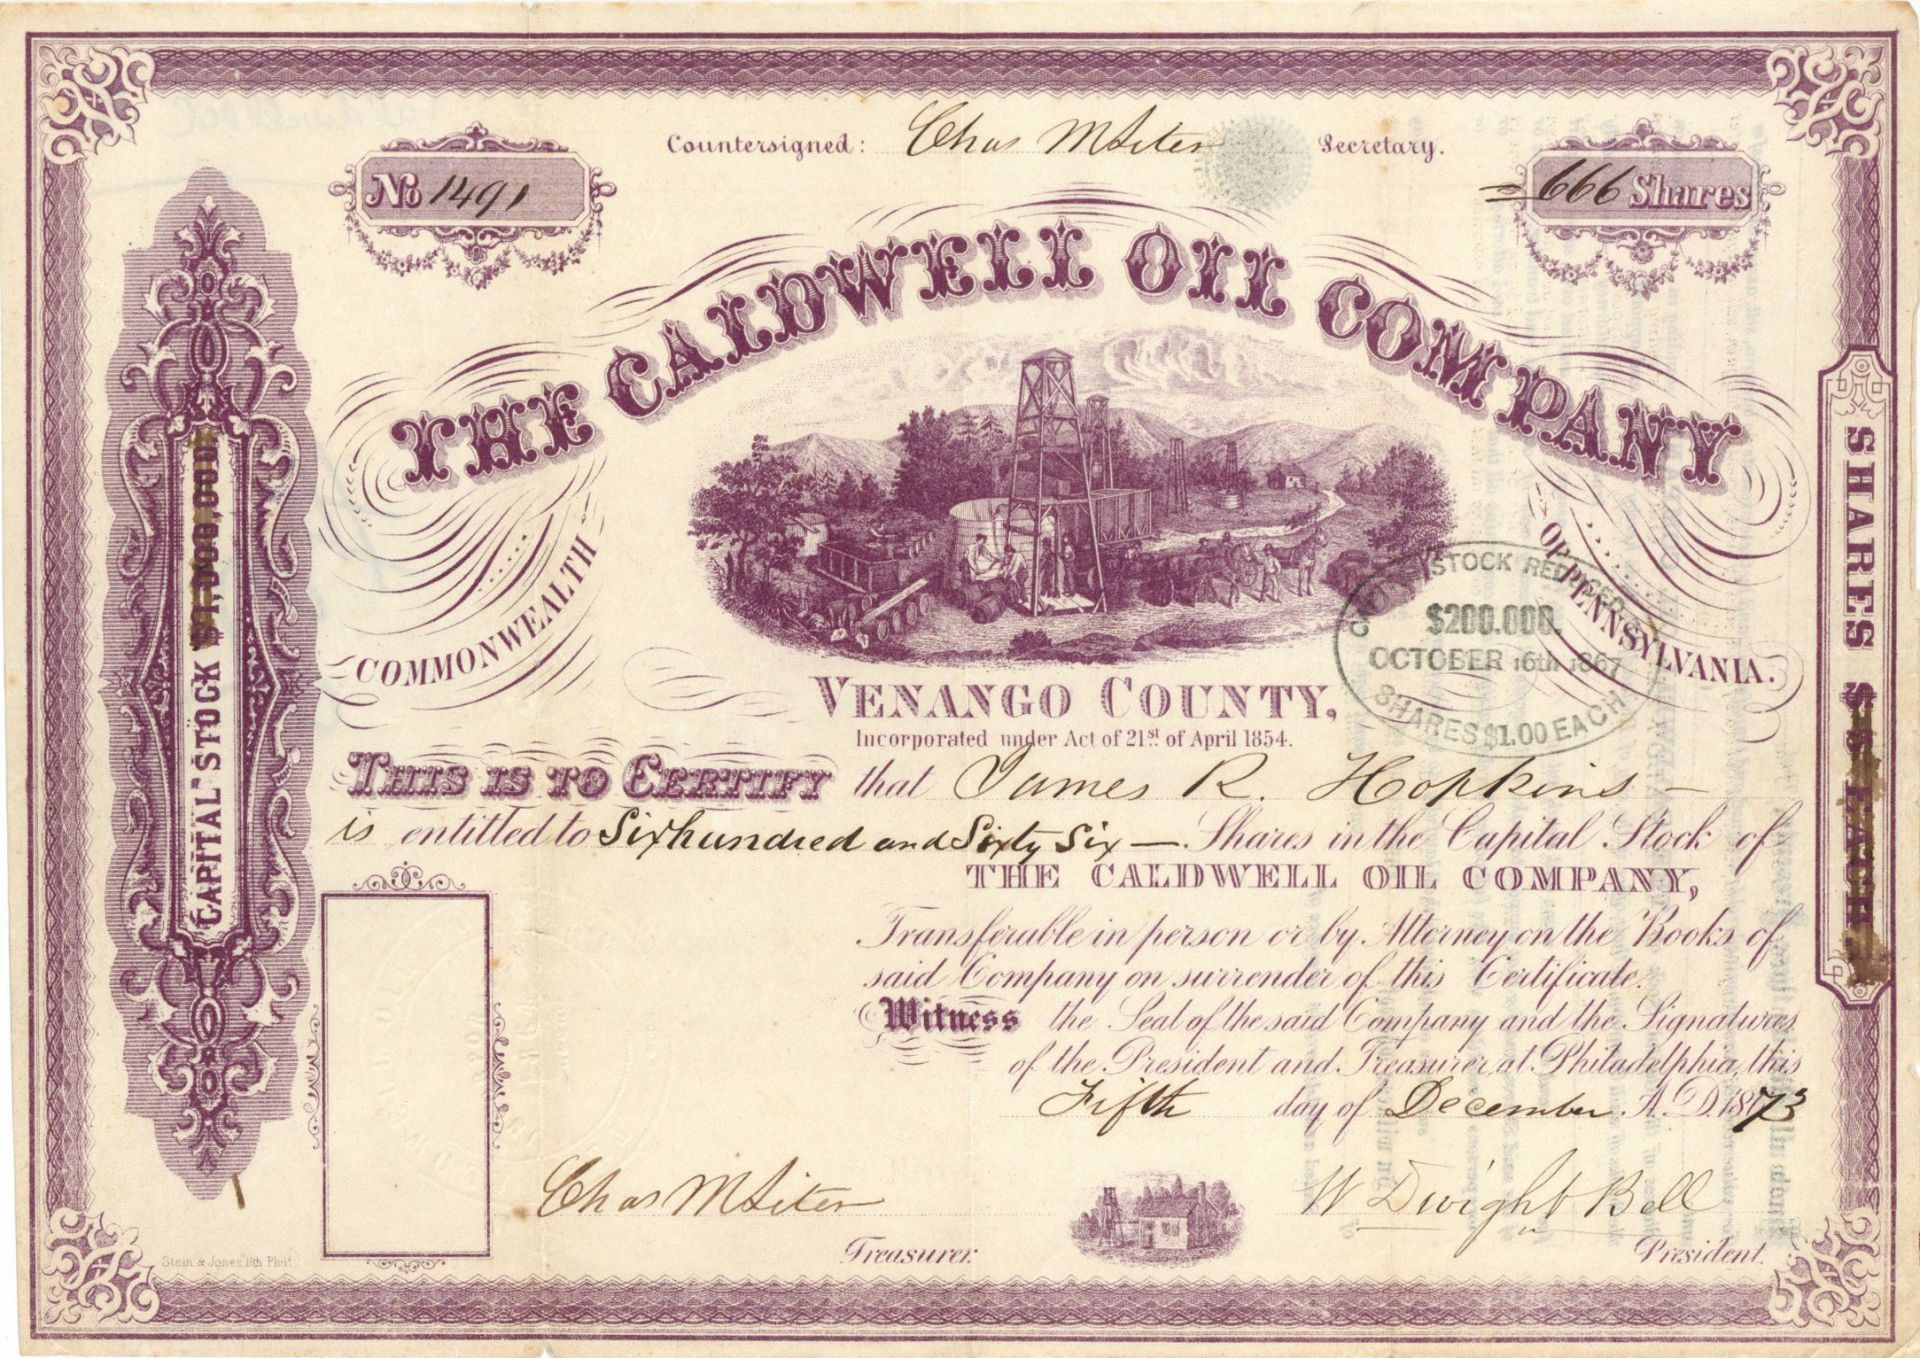 Countersigned: Chas M Siter Secretary.
No 1491
666 Shares
THE CALDWELL OIL COMPANY
COMMONWEALTH OF PENNSYLVANIA.
CAPITAL STOCK REDUCED
$200.000.
OCTOBER 16th 1867
SHARES $1.00 EACH
VENANGO COUNTY,
Incorporated under Act of 21st of April 1854.
THIS IS TO CERTIFY that James R. Hopkins
is entitled to Six hundred and Sixty Six — Shares in the Capital Stock of
THE CALDWELL OIL COMPANY,
Transferable in person or by Attorney on the Books of
said Company on surrender of this Certificate.
Witness the Seal of the said Company and the Signatures
of the President and Treasurer, at Philadelphia, this
Fifth day of December A.D. 1873
Chas M Siter
Treasurer.
W Dwight Bell
President.
CAPITAL STOCK $1,000,000
SHARES $ EACH.
Stein & Jones lith Phila